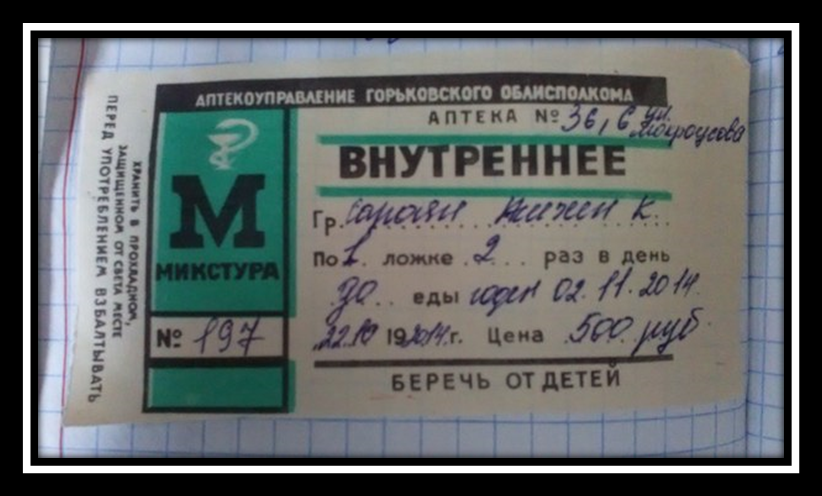 АПТЕКОУПРАВЛЕНИЕ ГОРЬКОВСКОГО ОБЛИСПОЛКОМА
АПТЕКА № 36, ул.
ВНУТРЕННЕЕ
Гр. К.
По 1. ложке 2... раз в день
до.. еды годен 02.11.2014
22.10 192014г. Цена 500 руб.
БЕРЕЧЬ ОТ ДЕТЕЙ
М
МИКСТУРА
№ 197
ХРАНИТЬ В ПРОХЛАДНОМ,
ЗАЩИЩЕННОМ ОТ СВЕТА МЕСТЕ
ПЕРЕД УПОТРЕБЛЕНИЕМ ВЗБАЛТЫВАТЬ